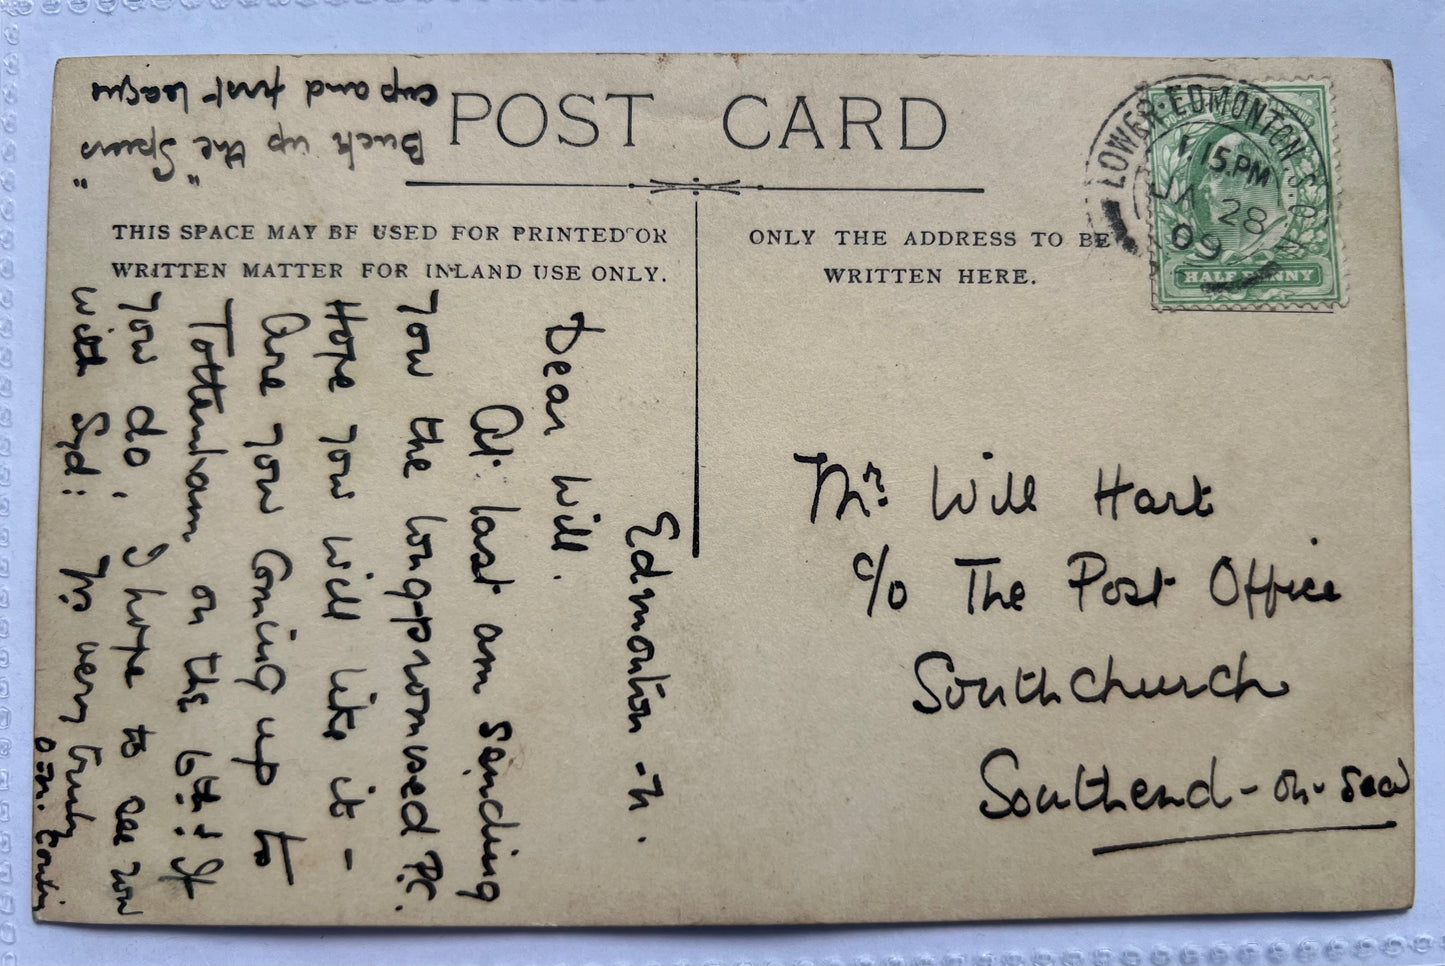 POST CARD
THIS SPACE MAY BE USED FOR PRINTED OR
WRITTEN MATTER FOR INLAND USE ONLY.
ONLY THE ADDRESS TO BE
WRITTEN HERE.
LOWER·EDMONTON.S.O
1.15.PM
JA 28
09
HALFPENNY
Mr. Will Hart
c/o The Post Office
Southchurch
Southend-on-Sea
Edmonton - N.
Dear Will.
At last am sending
you the long-promised P.C.
Hope you will like it -
Are you Coming up to
Tottenham on the 6th? If
you do, I hope to see you
with Syd: Yrs very truly
Buck up the "Spurs"
cup and first league